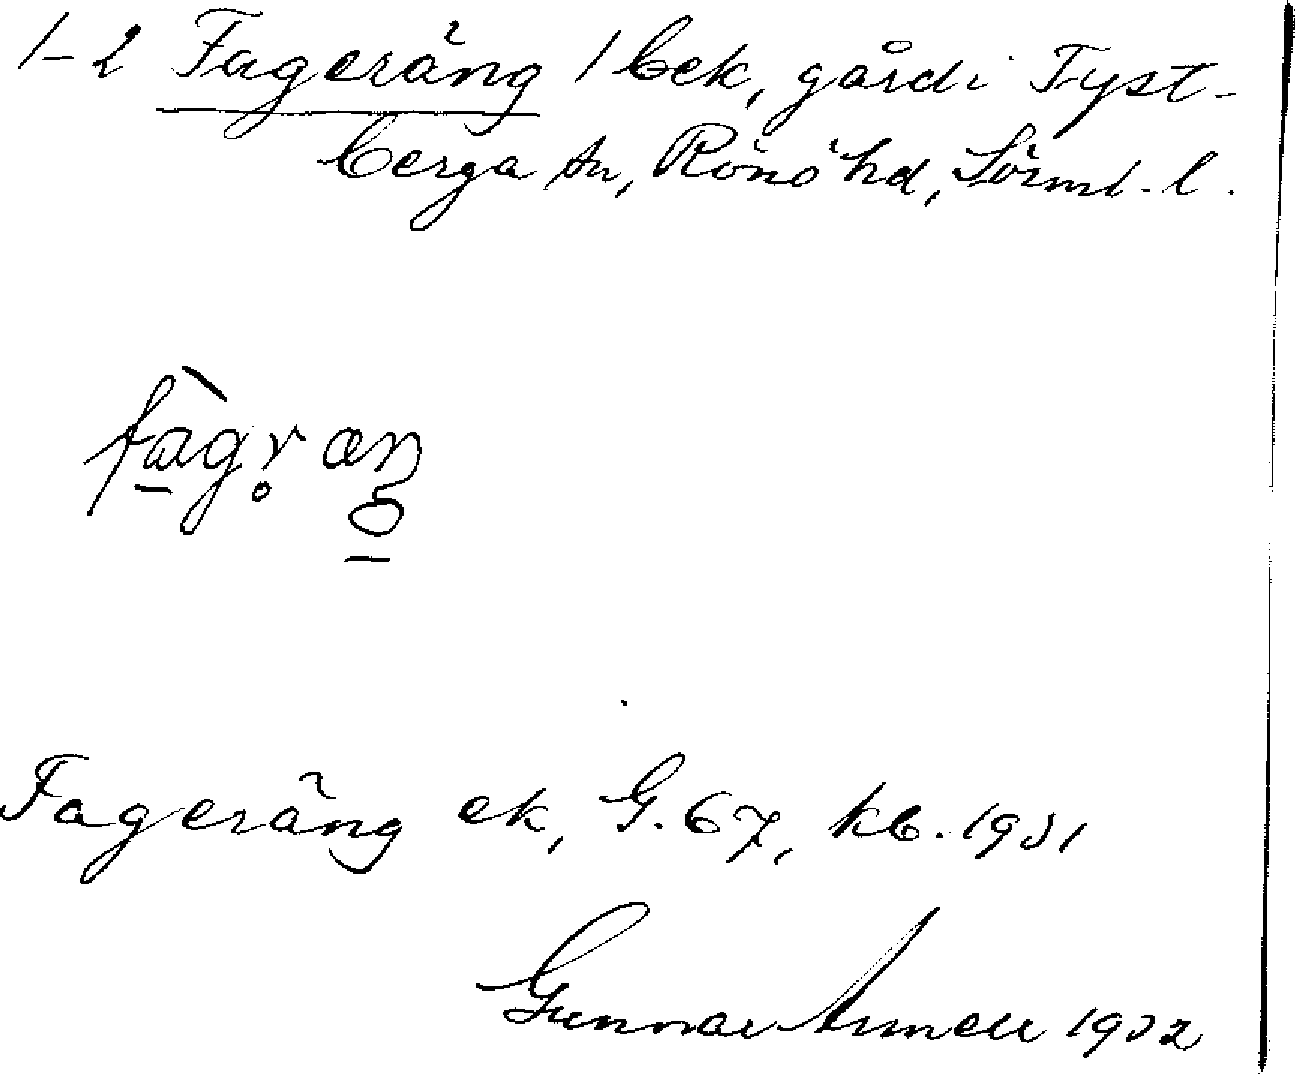 1-2 Fageräng / bek, gård i Tyst-
berga sn, Rönö hd, Sörml. l.
fàgr̥äŋ
Fageräng ek, G. 67, kb. 1931
Gunnar 1932